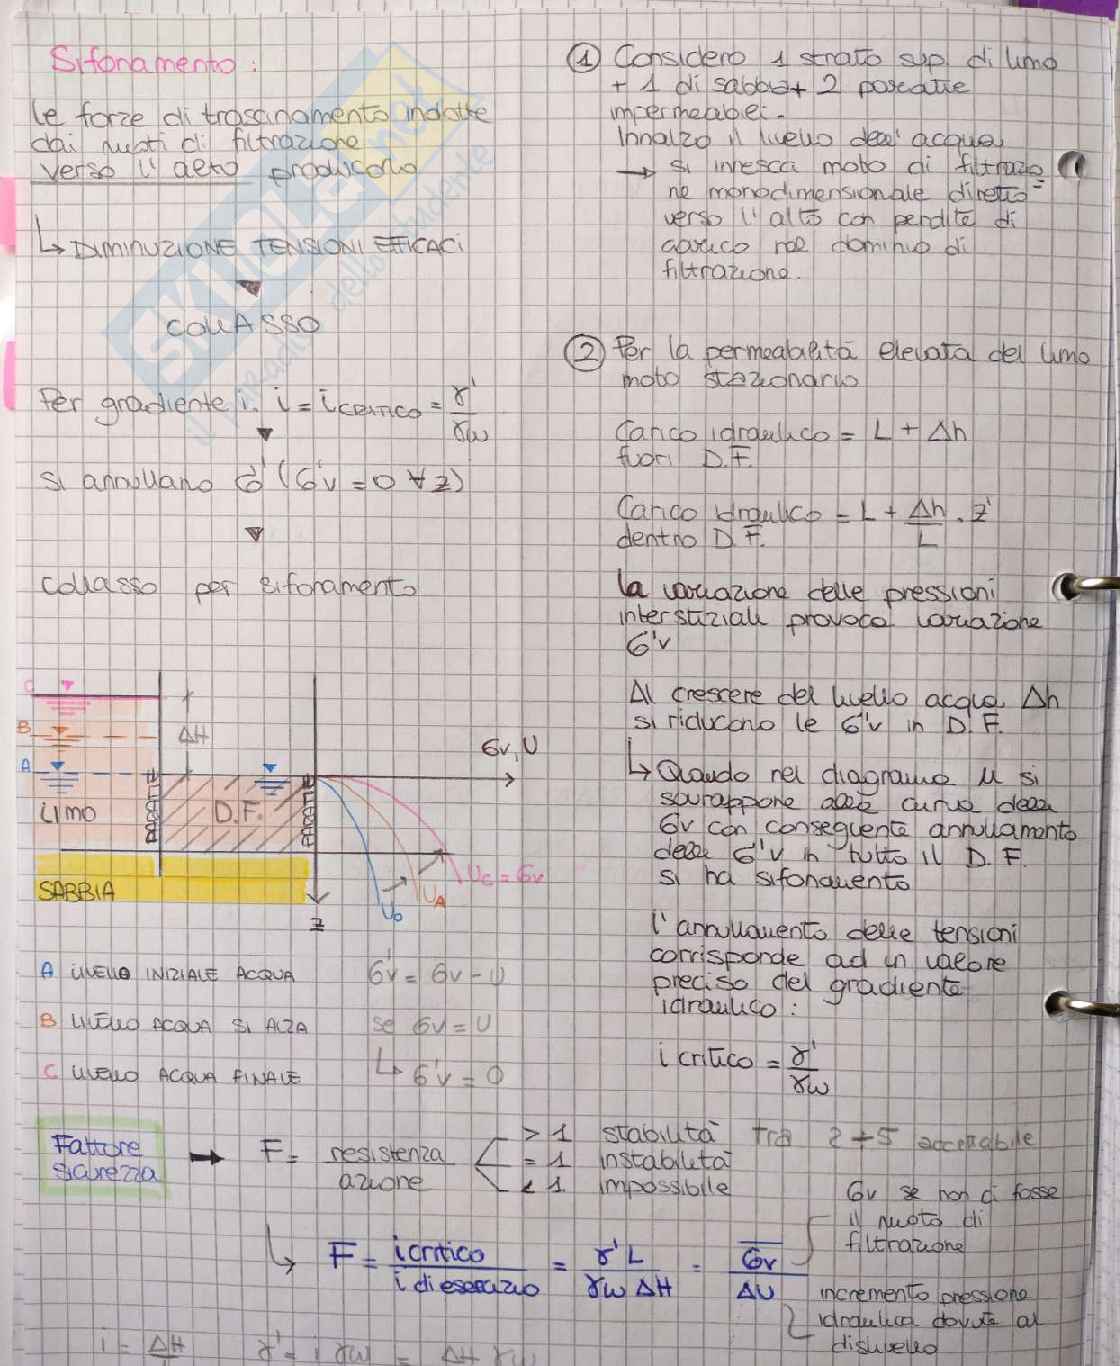 Sifonamento:
le forze di trascinamento indotte
dai moti di filtrazione
verso l'alto producono
↳ DIMINUZIONE TENSIONI EFFICACI
COLLASSO
Per gradiente i: i = i critico = γ'/γw
si annullano σ' (σ'v = 0 ∀ z)
collasso per sifonamento
C
B
A
ΔH
LIMO
PARATIE
D.F.
PARATIE
SABBIA
σv, U
Uc = σv
UA
U0
z
A LIVELLO INIZIALE ACQUA
B LIVELLO ACQUA SI ALZA
C LIVELLO ACQUA FINALE
σ'v = σv - U
se σv = U
↳ σ'v = 0
① Considero 1 strato sup. di limo
+ 1 di sabbia + 2 paratie
impermeabili.
Innalzo il livello dell'acqua
→ si innesca moto di filtrazio
ne monodimensionale diretto
verso l'alto con perdite di
carico nel dominio di
filtrazione.
② Per la permeabilità elevata del limo
moto stazionario
Carico idraulico = L + Δh
fuori D.F.
Carico idraulico = L + Δh/L · z'
dentro D.F.
la variazione delle pressioni
interstiziali provoca variazione
σ'v
Al crescere del livello acqua Δh
si riducono le σ'v in D.F.
↳ Quando nel diagramma u si
sovrappone alla curva della
σv con conseguente annullamento
della σ'v in tutto il D.F.
si ha sifonamento
l'annullamento delle tensioni
corrisponde ad un valore
preciso del gradiente
idraulico:
i critico = γ'/γw
Fattore
sicurezza
→ F = resistenza/azione
> 1 stabilità Tra 2÷5 accettabile
= 1 instabilità
< 1 impossibile
↳ F = i critico/i di esercizio = γ' L/γw ΔH = σv/ΔU
σv se non ci fosse
il moto di
filtrazione
incremento pressione
idraulica dovute al
dislivello
i = ΔH
γ' = i γw = ΔH γw
SKUOLA.net